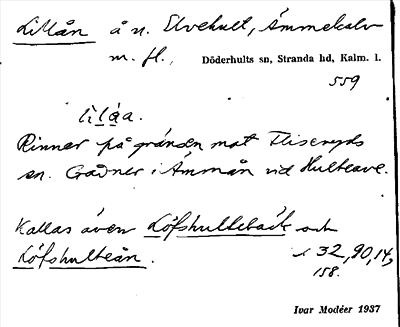 Lillån å n. Elvehult, Ämmekalv
m. fl., Döderhults sn, Stranda hd, Kalm. l.
559
lilåa.
Rinner på gränsen mot Fliseryds
sn. Grenar i Ämmån vid Hulteave.
Kallas även Löfshultebäck och
Löfshulteån. s. 32, 90, 14,
158.
Ivar Modéer 1937